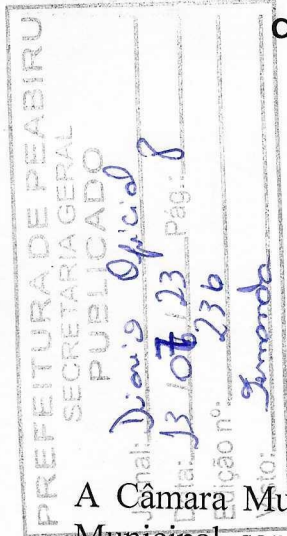 PREFEITURA DE PEABIRU
SECRETARIA GERAL
PUBLICADO
Jornal: Diario Oficial
Data: 13 07 23 Pág.: 8
Edição nº: 236
Fernanda
A Câmara Mu
Municipal